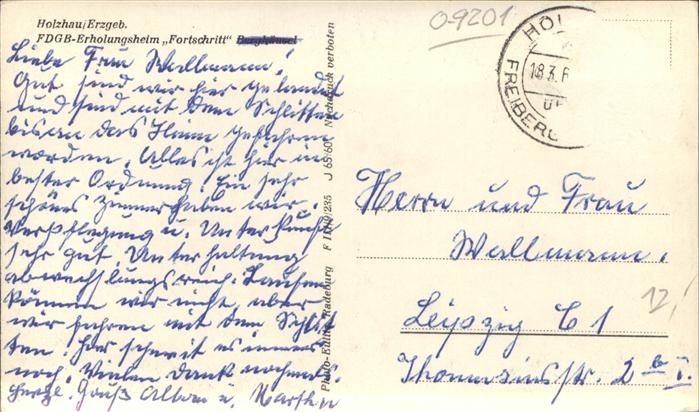 Holzhau/Erzgeb.
FDGB-Erholungsheim „Fortschritt“ Berghäusel
Liebe Frau Wallmann!
Gut sind wir hier gelandet
und sind mit dem Schlitten
bis an das Heim gefahren
worden. Alles ist hier in
bester Ordnung. Ein sehr
schönes Zimmer haben wir.
Verpflegung u. Unterkunft
sehr gut, Unterhaltung
abwechslungsreich. Laufen
können wir nicht, aber
wir fuhren mit dem Schlit-
ten. Hier schneit es immer
noch. Vielen Dank nochmals.
Herzl. Grüße u.
Photo-Edition Radeburg F 11049/235 J 68/60 Nachdruck verboten
0-9201
HOL
FREIBERG
18.3.6
Herrn und Frau
Wallmann.
12,
Leipzig C 1
Thomasiusstr. 2 b I.